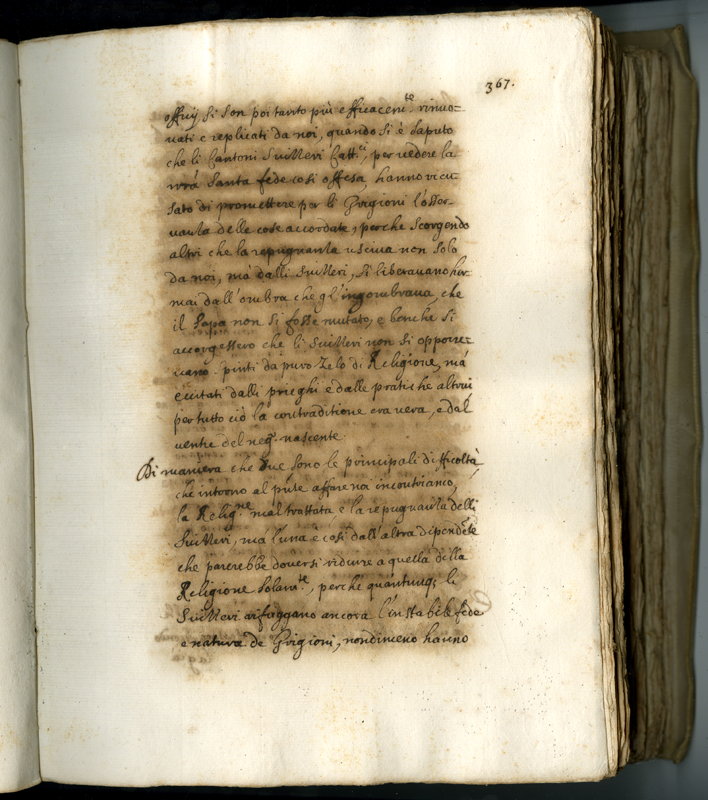 367.
offitij si son poi tanto più efficacem.te rinuo-
uati e replicati da noi, quando si è saputo
che li Cantoni Suizzeri Catt.ci, per uedere la
nrã Santa fede così offesa, hanno ricu-
sato di promettere per li Grigioni l'osser-
uanza delle cose accordate, perche scorgendo
altri che la repugnanza usciua non solo
da noi, mà dalli Suizzeri, si liberauano hor-
mai dall'ombra che gl'ingombraua, che
il Papa non si fosse mutato, e benche si
accorgessero che li Suizzeri non si opporre-
uano. pinti da puro Zelo di Religione, mà
eccitati dalli prieghi e dalle pratiche altrui
per tutto ciò la contraditione era uera, e dal
uentre del neg.o nascente
Di maniera che due sono le principali difficoltà
che intorno al pñte affare noi incontriamo,
la Relig.ne mal trattata e la repugnanza delli
Suizzeri, mà l'una è così dall'altra dipendẽte
che parerebbe douersi ridurre a quella della
Religione solam.te, perche quantunq; li
Suizzeri ancora l'instabile fede
e natura de Grigioni, nondimeno hanno